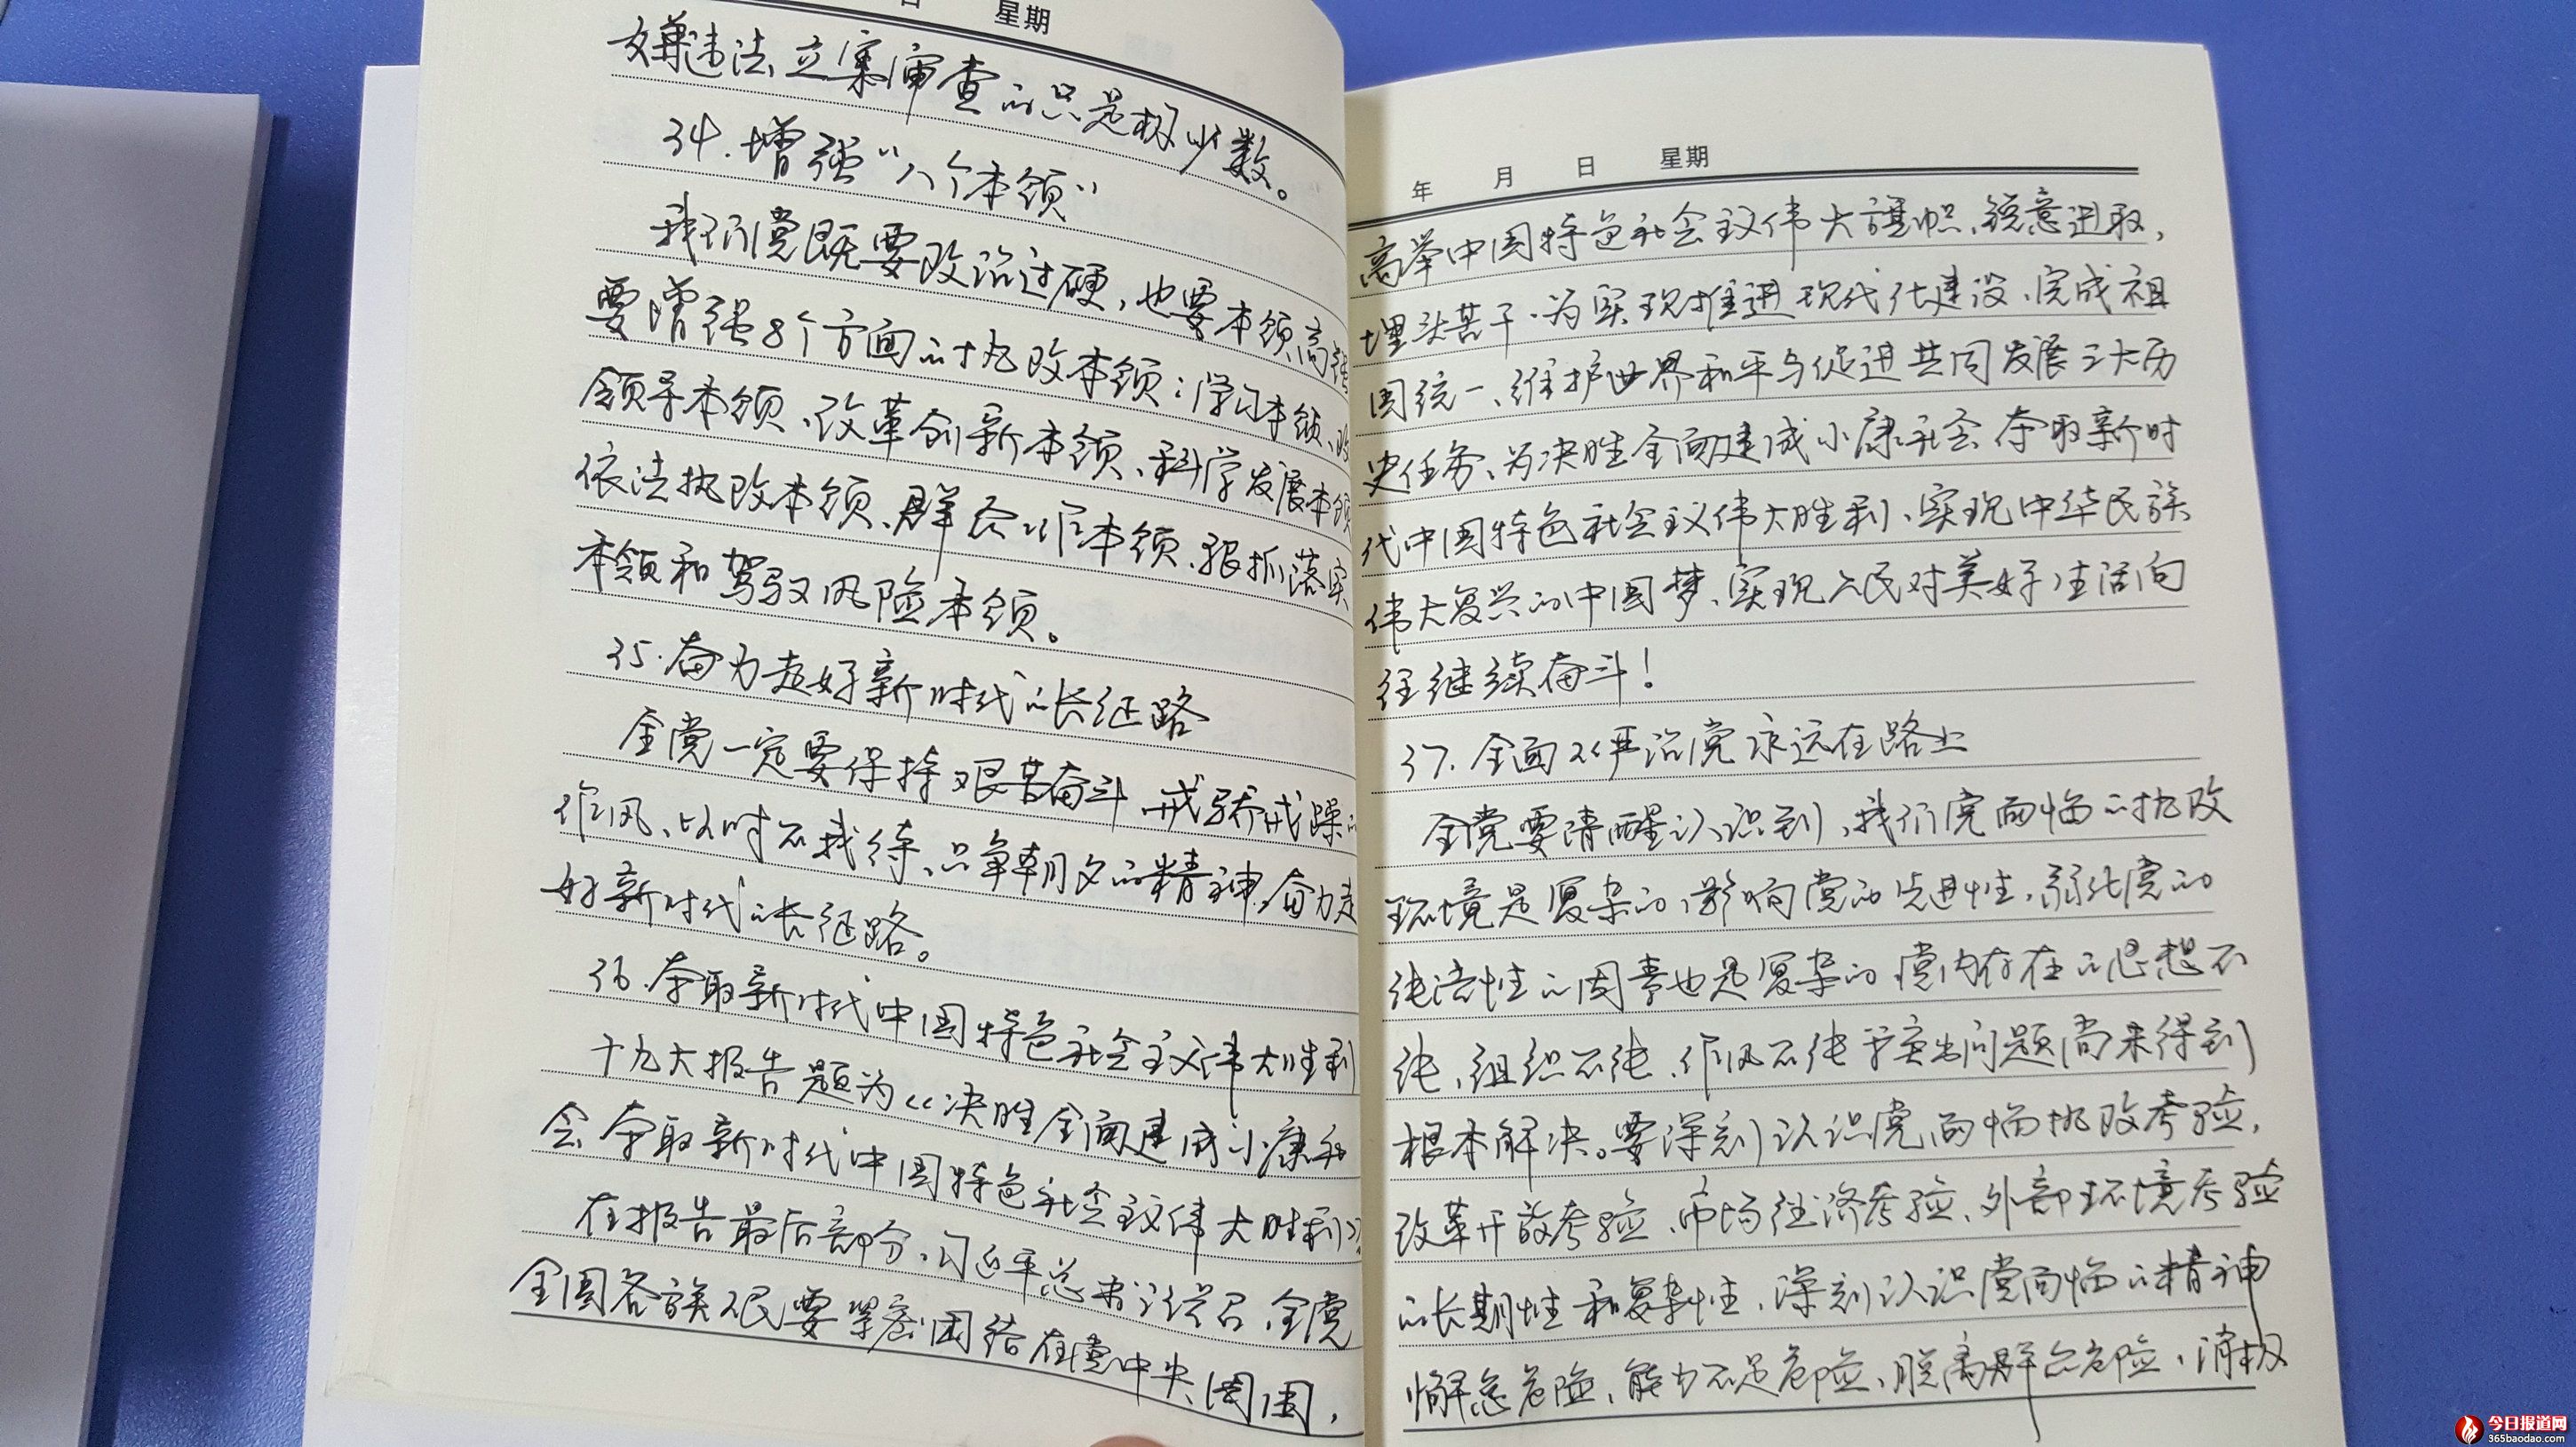 日 星期
嫌违法立案审查的只是极少数。
34.增强“八个本领”
我们党既要政治过硬，也要本领高强
要增强8个方面的执政本领：学习本领、政
领导本领、改革创新本领、科学发展本领
依法执政本领、群众工作本领、狠抓落实
本领和驾驭风险本领。
35.奋力走好新时代的长征路
全党一定要保持艰苦奋斗、戒骄戒躁的
作风，以时不我待、只争朝夕的精神，奋力走
好新时代的长征路。
36.夺取新时代中国特色社会主义伟大胜利
十九大报告题为《决胜全面建成小康社
会 夺取新时代中国特色社会主义伟大胜利》
在报告最后部分，习近平总书记号召，全党
全国各族人民要紧密团结在党中央周围，
年 月 日 星期
高举中国特色社会主义伟大旗帜，锐意进取，
埋头苦干，为实现推进现代化建设、完成祖
国统一、维护世界和平与促进共同发展三大历
史任务，为决胜全面建成小康社会 夺取新时
代中国特色社会主义伟大胜利、实现中华民族
伟大复兴的中国梦、实现人民对美好生活向
往继续奋斗！
37.全面从严治党永远在路上
全党要清醒认识到，我们党面临的执政
环境是复杂的，影响党的先进性，弱化党的
纯洁性的因素也是复杂的 党内存在的思想不
纯、组织不纯、作风不纯等突出问题尚未得到
根本解决。要深刻认识党面临执政考验，
改革开放考验、市场经济考验、外部环境考验
的长期性和复杂性，深刻认识党面临的精神
懈怠危险、能力不足危险、脱离群众危险、消极
今日报道网
365baodao.com